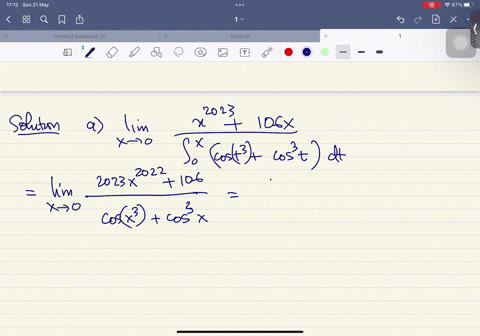 17:12 Sun 21 May
67%
1
Untitled Notebook (1)
Scratch
1
Solution a) lim x→0 (x^2023 + 106x) / (∫_0^x (cos(t^3) + cos^3 t) dt)
= lim x→0 (2023x^2022 + 106) / (cos(x^3) + cos^3 x) =